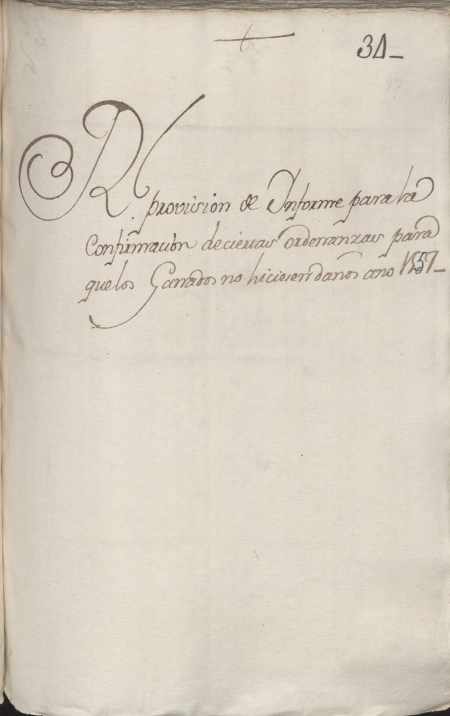 34_
Rl provision de Informe para la
Confirmación de ciertas ordenanzas para
que los Ganados no hiciesen daños ano 1557_